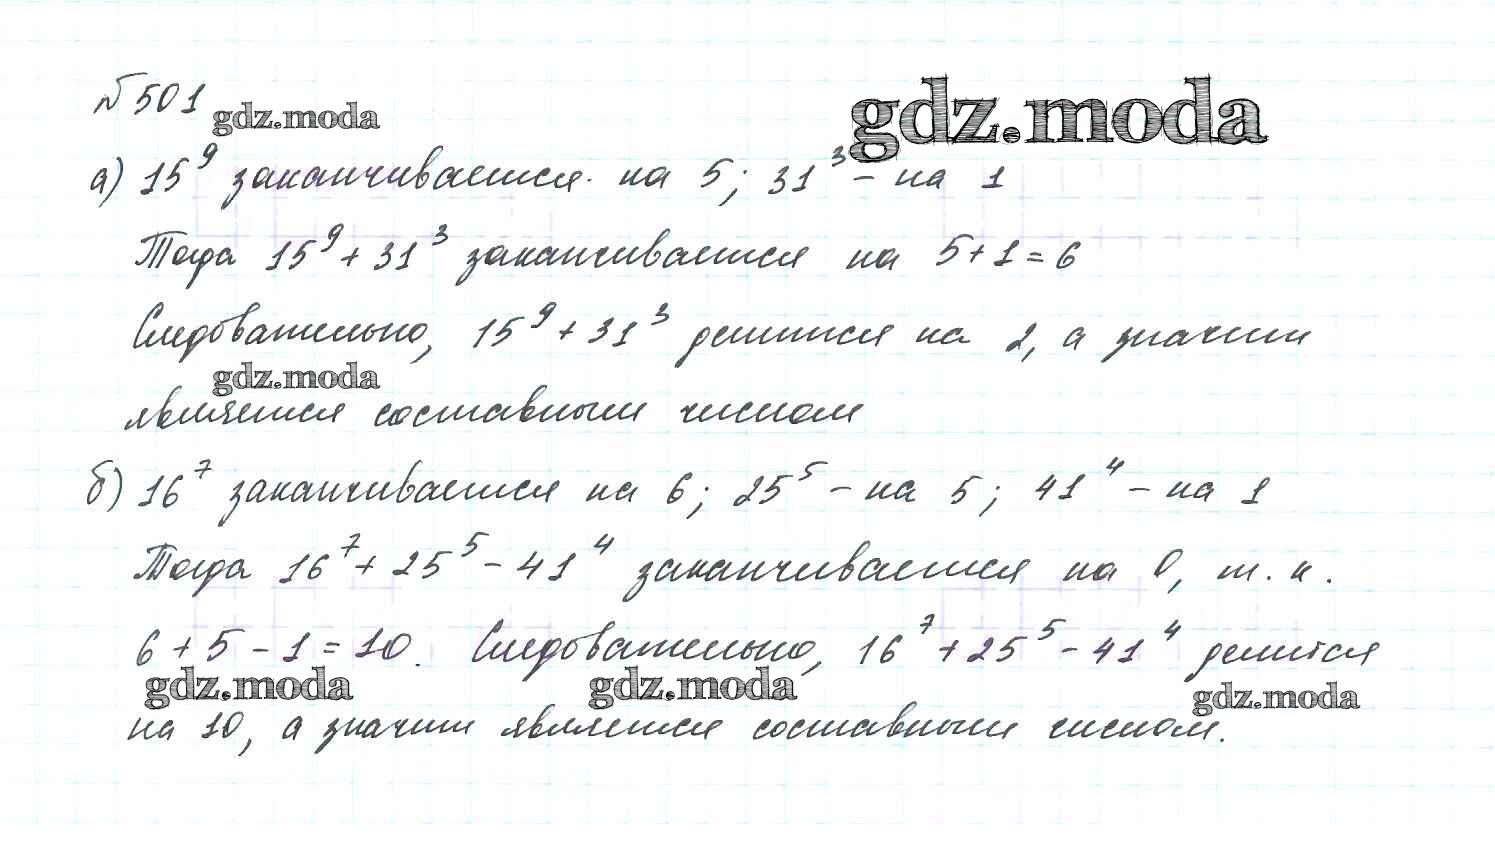 № 501
gdz.moda
gdz.moda
а) 15⁹ заканчивается. на 5; 31³ – на 1
Тогда 15⁹ + 31³ заканчивается на 5+1=6
Следовательно, 15⁹ + 31³ делится на 2, а значит
gdz.moda
является составным числом
б) 16⁷ заканчивается на 6; 25⁵ – на 5; 41⁴ – на 1
Тогда 16⁷ + 25⁵ – 41⁴ заканчивается на 0, т. к.
6 + 5 – 1 = 10. Следовательно, 16⁷ + 25⁵ – 41⁴ делится
gdz.moda gdz.moda gdz.moda
на 10, а значит является составным числом.